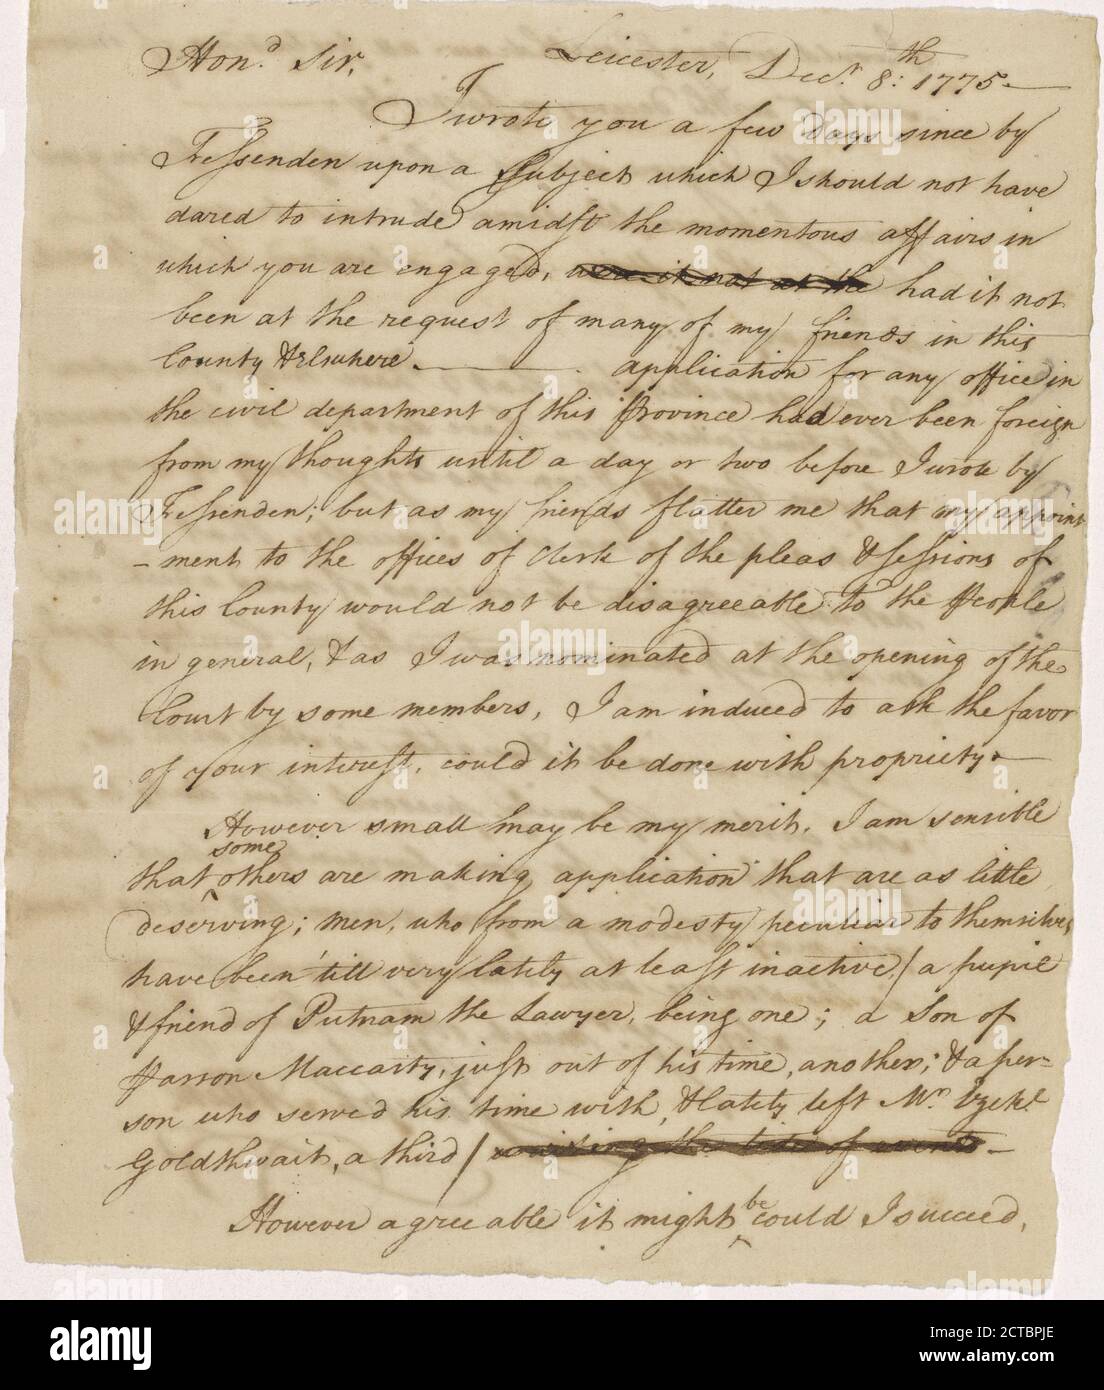 Leicester, Decr. 8:th 1775.
Hond. Sir,
I wrote you a few days since by
Fessenden upon a Subject which I should not have
dared to intrude amidst the momentous affairs in
which you are engaged, were it not at the had it not
been at the request of many of my friends in this
County & elswhere. application for any office in
the civil department of this Province had ever been foreign
from my thoughts until a day or two before I wrote by
Fessenden; but as my friends flatter me that my appoint
-ment to the offices of clerk of the pleas & sessions of
this County would not be disagreeable to the People
in general, & as I was nominated at the opening of the
Court by some members, I am induced to ask the favor
of your interest, could it be done with propriety.
However small may be my merit, I am sensible
that some others are making application that are as little
deserving; men, who from a modesty peculiar to themselves
have been 'till very lately at least inactive / a pupil
& friend of Putnam the Lawyer, being one; a Son of
Parson Maccarty, just out of his time, another; & a per-
son who served his time with, & lately left Mr. Ezekl.
Goldthwait, a third / the of events -
However agreeable it might be could I succeed,
alamy
a
Image ID: 2CTBPJE
www.alamy.com